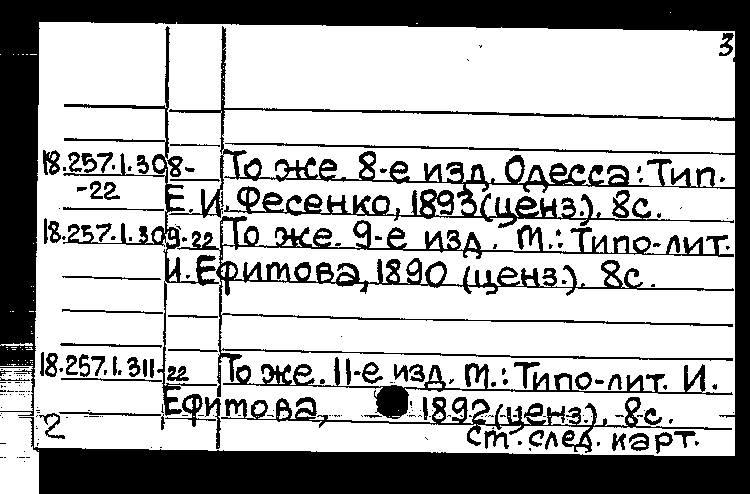 3
18.257.1.308- То же. 8-е изд. Одесса: Тип.
-22 Е.И. Фесенко, 1893 (ценз.). 8с.
18.257.1.309-22 То же. 9-е изд. М.: Типо-лит.
И. Ефимова, 1890 (ценз.). 8с.
18.257.1.311-22 То же. 11-е изд. М.: Типо-лит. И.
Ефимова, 1892 (ценз.). 8с.
2 См. след. карт.